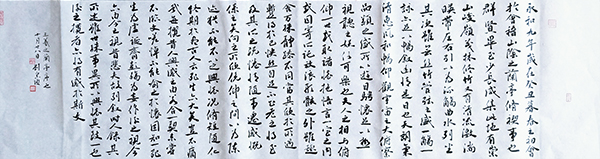 永和九年歲在癸丑暮春之初會
於會稽山陰之蘭亭脩稧事也
群賢畢至少長咸集此地有崇
山峻領茂林脩竹又有清流激湍
暎帶左右引以為流觴曲水列坐
其次雖無絲竹管弦之盛一觴一
詠亦足以暢敘幽情是日也天朗氣
清惠風和暢仰觀宇宙之大俯察
品類之盛所以遊目騁懷足以極
視聽之娛信可樂也夫人之相與俯
仰一世或取諸懷抱悟言一室之內
或因寄所託放浪形骸之外雖趣
舍萬殊靜躁不同當其欣於所遇
暫得於己快然自足不知老之將至
及其所之既惓情隨事遷感慨
係之矣向之所欣俛仰之間以為陳
迹猶不能不以之興懷況脩短隨化
終期於盡古人云死生亦大矣豈不痛
哉每攬昔人興感之由若合一契未嘗
不臨文嗟悼不能喻之於懷固知一死
生為虛誕齊彭殤為妄作後之視今
亦由今之視昔悲夫故列敘時人錄其
所述雖世殊事異所以興懷其致一也
後之攬者亦將有感於斯文
王羲之蘭亭序